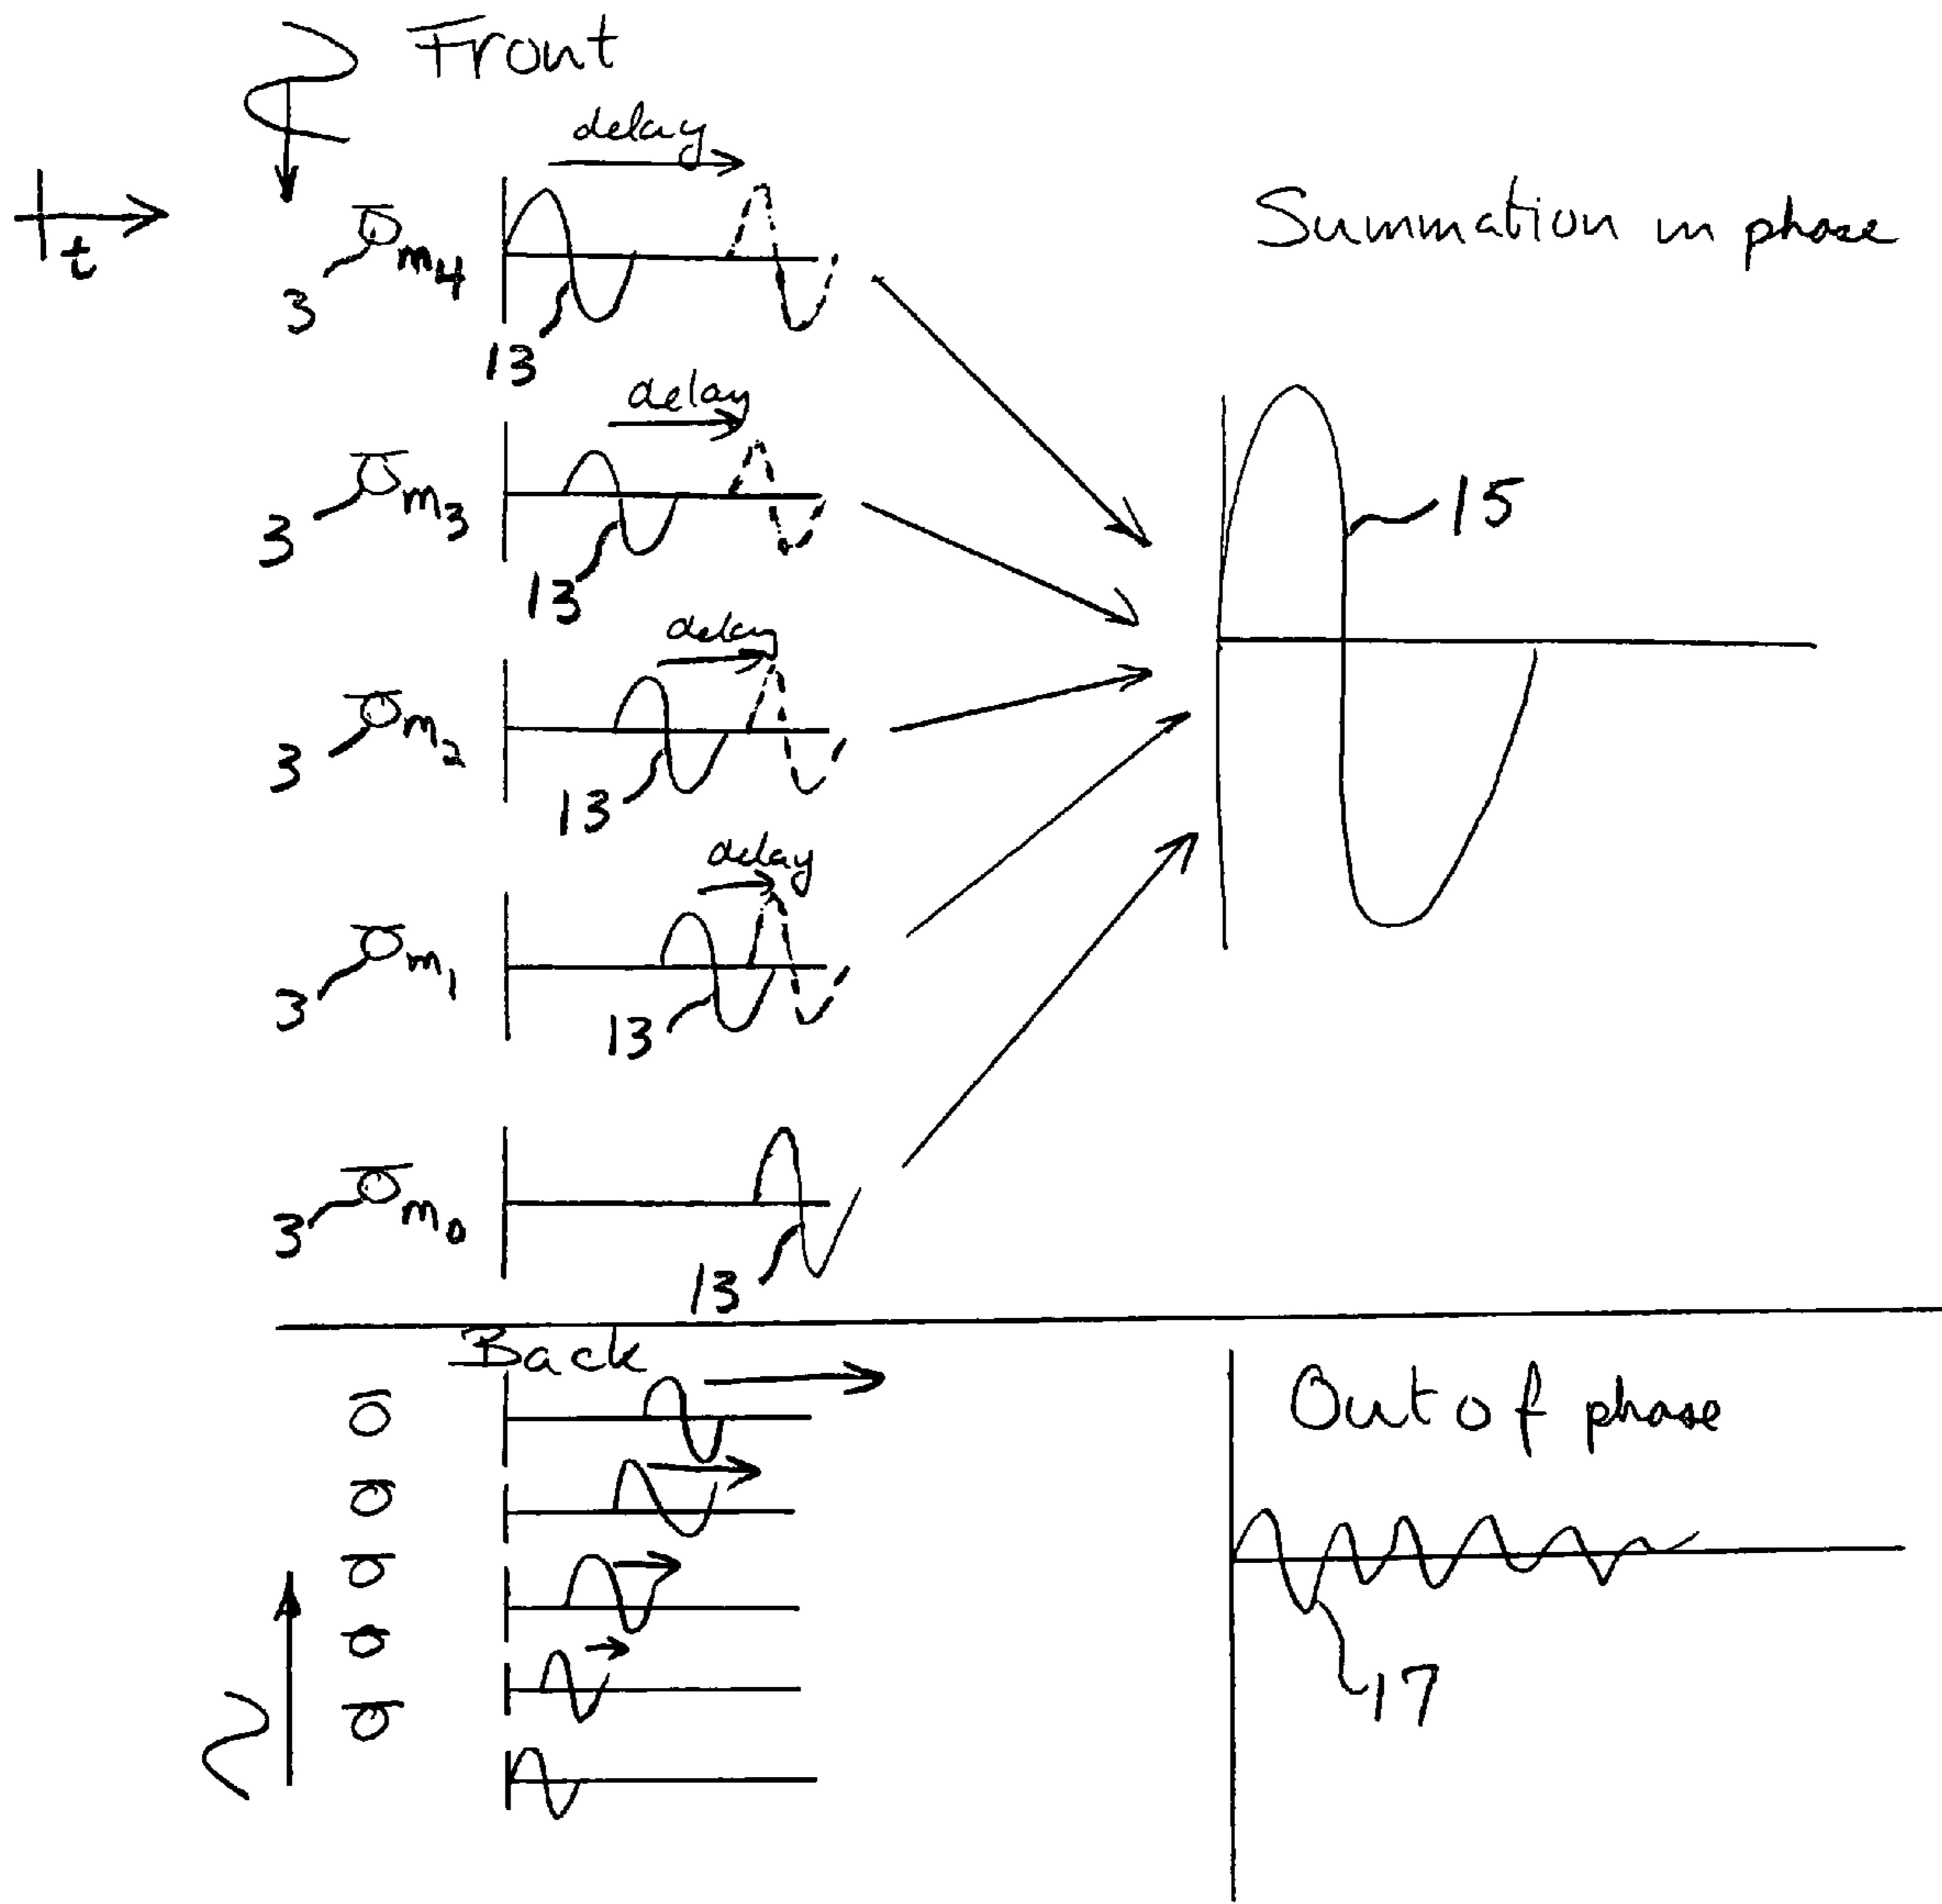 Front
delay
t
Summation in phase
3 m4
13
delay
3 m3
13
15
delay
3 m2
13
delay
3 m1
13
3 m0
13
Back
Out of phase
17